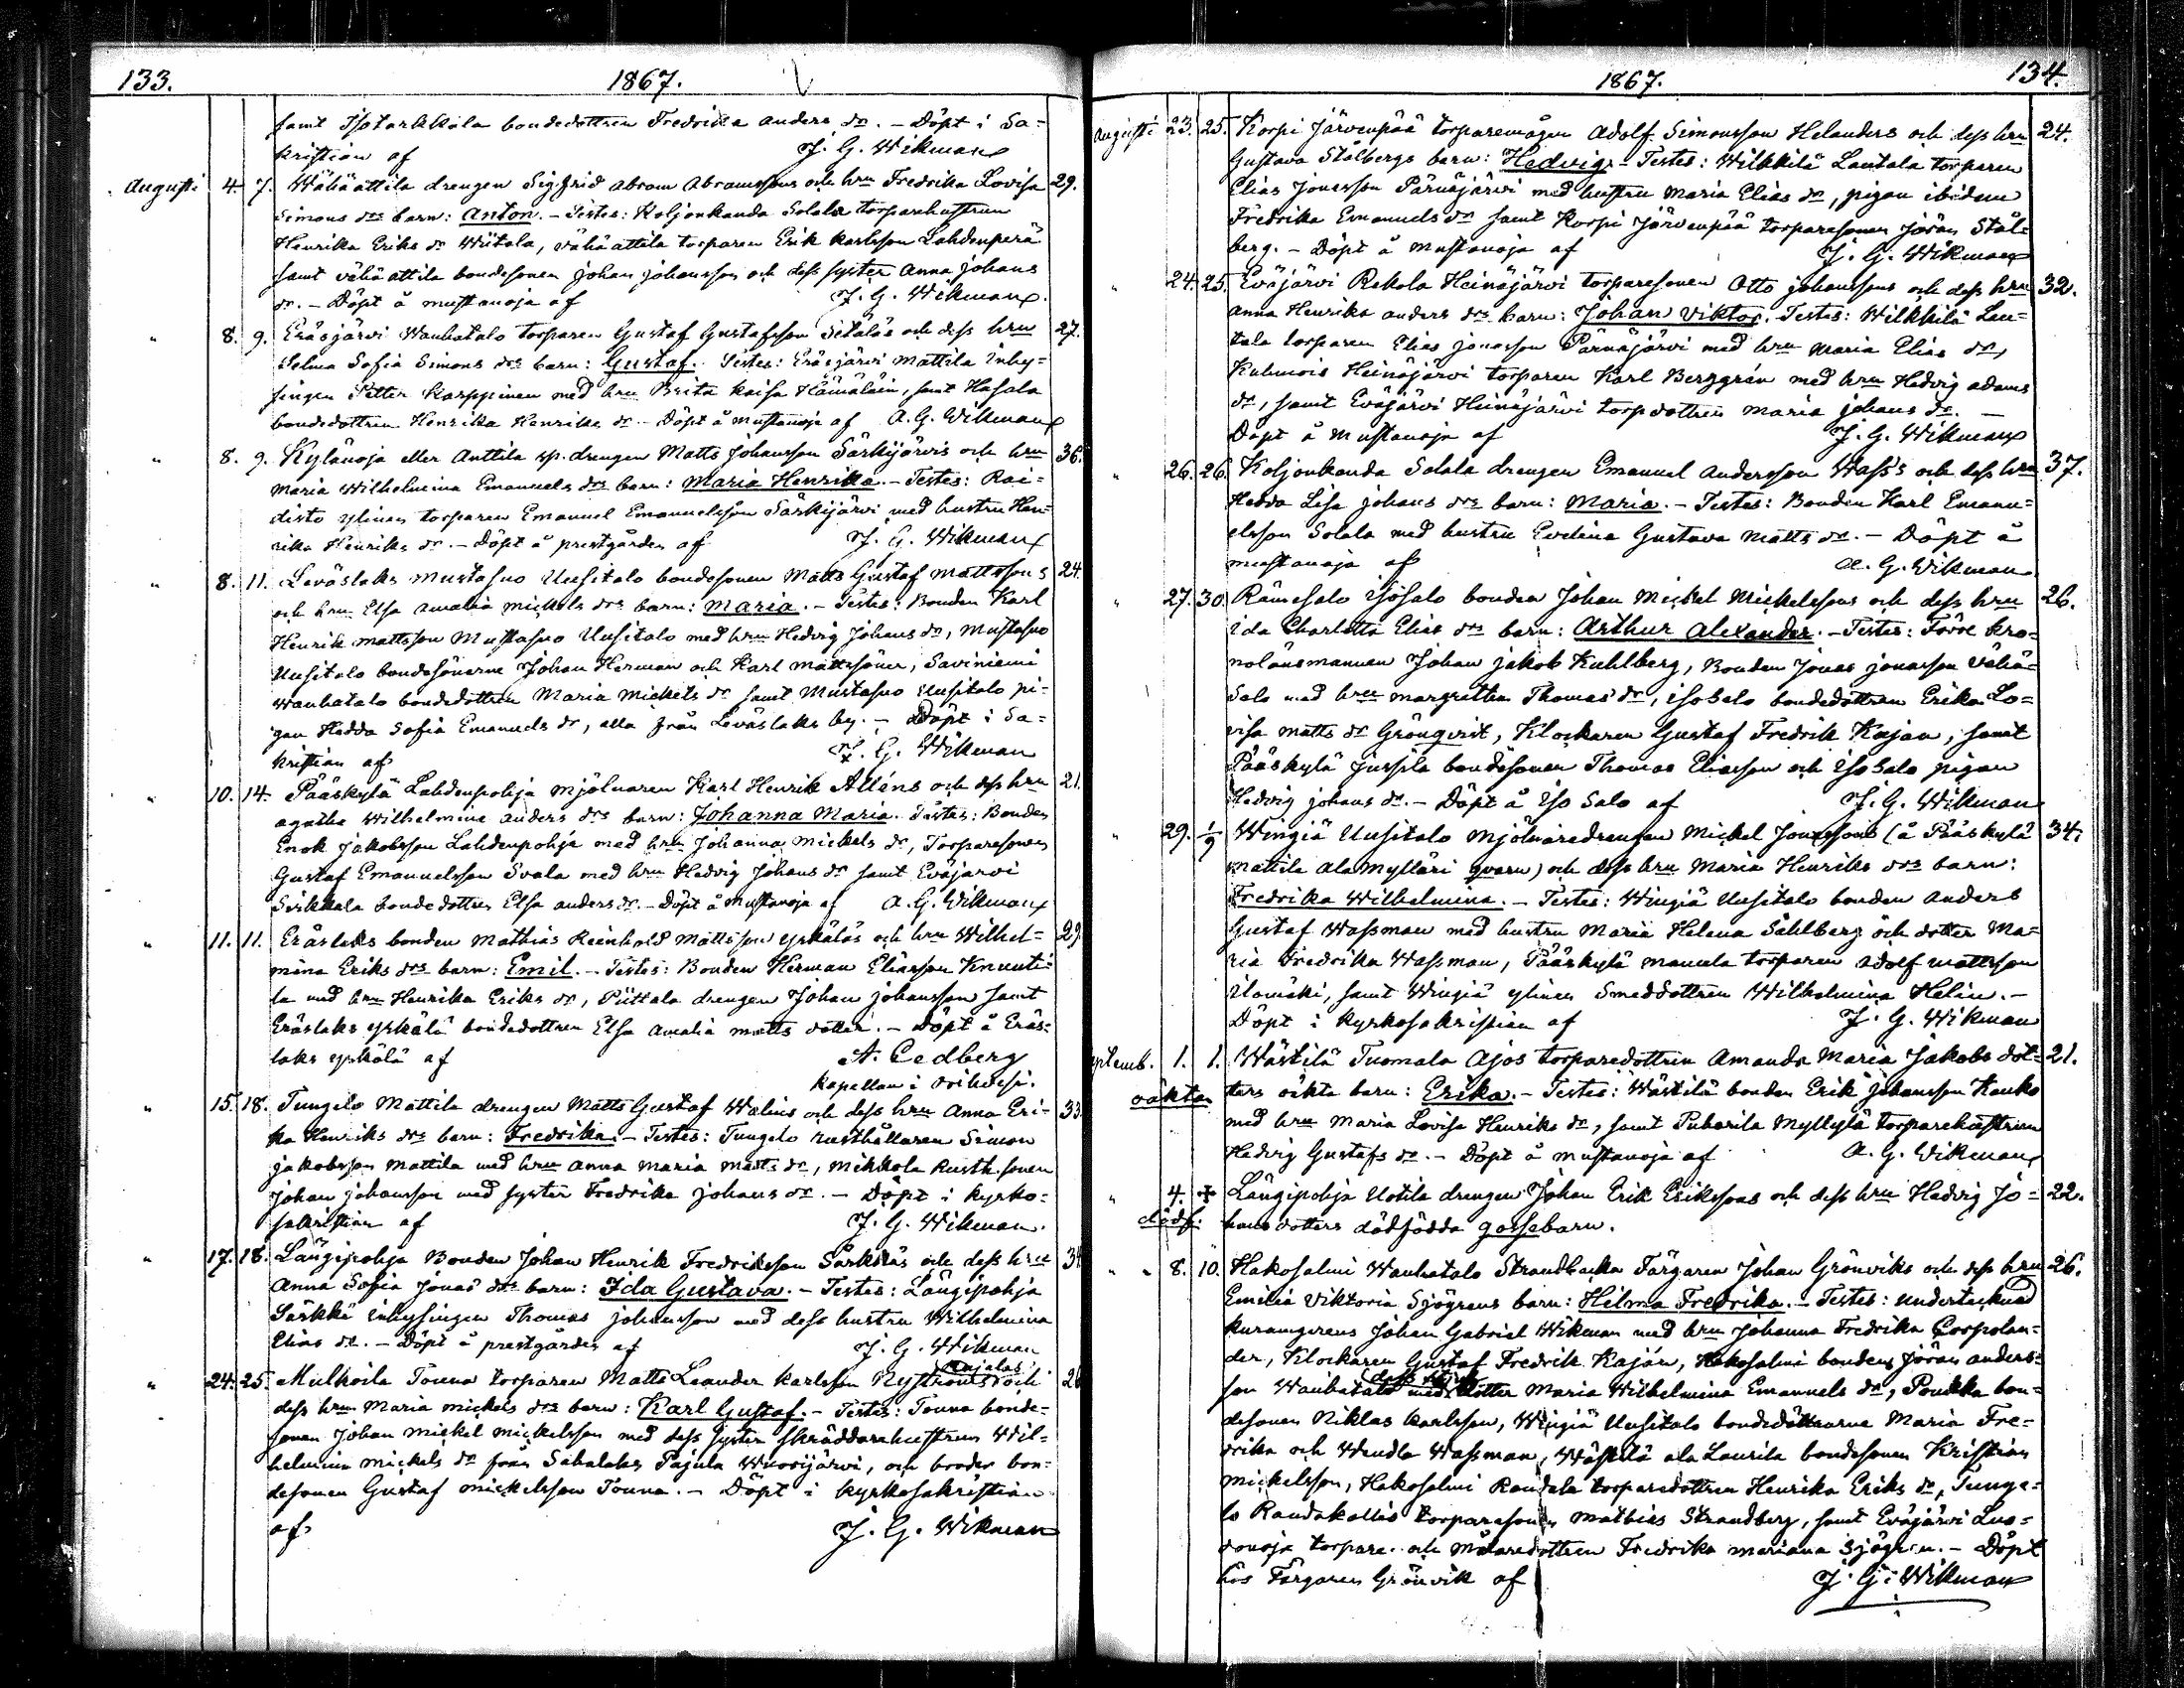 133. 1867.
samt Isotarkkala bondedottren Fredrika Anders dr. – Döpt i Sa=
kristian af J. G. Wikman
Augusti 4. 7. Wähäattila drengen Sigfrid Abram Abramssons och hru Fredrika Lovisa 29.
Simons drs barn: Anton. – Testes: Koljonkanda Solala torparehustrun
Henrika Eriks dr Wiitala, vähäattila torparen Erik Karlsson Lahdenperä
samt vähäattila bondesonen Johan Johansson och dess syster Anna Johans
dr. – Döpt å Mustanoja af J. G. Wikman.
" 8. 9. Eräsjärvi Wanhatalo torparen Gustaf Gustafsson Sitäläs och dess hru 27.
Selma Sofia Simons drs barn: Gustaf. Testes: Eräsjärvi Mattila inhy=
singen Petter Karppinen med hru Brita Kaisa Hämäläin, samt Hasala
bondedottren Henrika Henriks dr – Döpt å Mustanoja af A. G. Wikman
" 8. 9. Kylänoja eller Anttila sp. drengen Matts Johansson Särkijärvis och hru 36.
Maria Wilhelmina Emanuels drs barn: Maria Henrika. – Testes: Rai=
disto ylinen torparen Emanuel Emanuelsson Särkijärvi med hustru Hen=
rika Henriks dr. – Döpt å prestgården af J. G. Wikman
" 8. 11. Leväslaks Mustasuo Uusitalo bondesonen Matts Gustaf Mattssons 24.
och hru Elsa Amalia Mickels drs barn: Maria. – Testes: Bonden Karl
Henrik Mattsson Mustasuo Uusitalo med hru Hedvig Johans dr, Mustasuo
Uusitalo bondesönerne Johan Herman och Karl Mattssöner, Saviniemi
Wanhatalo bondedottren Maria Mickels dr samt Mustasuo Uusitalo pi=
gan Hedda Sofia Emanuels dr, alla från Leväslaks by. – Döpt i Sa=
kristian af J. G. Wikman
" 10. 14. Pääskylä Lahdenpohja mjölnaren Karl Henrik Alléns och dess hru 21.
Agatha Wilhelmina Anders drs barn: Johanna Maria. Testes: Bonden
Enok Jakobsson Lahdenpohja med hru Johanna Mickels dr, Torparesonen
Gustaf Emanuelsson Svala med hru Hedvig Johans dr samt Eväjärvi
Sirkkala bondedottren Elsa Anders dr. – Döpt å Mustanoja af A. G. Wikman
" 11. 11. Eräslaks bonden Mathias Reinhold Mattsson Yrkäläs och hru Wilhel= 29.
mina Eriks drs barn: Emil. – Testes: Bonden Herman Eliasson Knuuti=
la med hru Henrika Eriks dr, Piittala drengen Johan Johansson samt
Eräslaks Yrkälä bondedottren Elsa Amalia Matts dotter. – Döpt å Eräs=
laks Yrkälä af A. Cedberg
kapellan i Orihvesi.
" 15. 18. Tungelo Mattila drengen Matts Gustaf Walins och dess hru Anna Eri= 33.
ka Henriks drs barn: Fredrika. – Testes: Tungelo rusthållaren Simon
Jakobsson Mattila med hru Anna Maria Matts dr, Mikkola Rusth. sonen
Johan Johansson med syster Fredrika Johans dr. – Döpt i kyrko=
sakristian af J. G. Wikman.
" 17. 18. Längipohja Bonden Johan Henrik Fredriksson Särkkäs och dess hru 34
Anna Sofia Jonas drs barn: Ida Gustava. – Testes: Längipohja
Särkkä inhysingen Thomas Johansson med dess hustru Wilhelmina
Elias dr. – Döpt å prestgården af J. G. Wikman
" 24. 25. Mulkoila Touna torparen Matts Leander Karlsson Nyströms och 26
dess hru Maria Mickels drs barn: Karl Gustaf. – Testes: Touna bonde=
sonen Johan Mickel Mickelsson med dess syster skräddarehustrun Wil=
helmina Mickels dr från Sahalaks Pajula Wuorijärvi, och broder bon=
desonen Gustaf Mickelsson Touna. – Döpt i kyrkosakristian
af J. G. Wikman
1867. 134.
Augusti 23. 25. Korpi Järvenpää torparemågen Adolf Simonsson Helanders och dess hru 24.
Gustava Stålbergs barn: Hedvig. – Testes: Wilkkilä Lautala torparen
Elias Jonasson Pärnäjärvi med hustru Maria Elias dr, pigan ibidem
Fredrika Emanuels dr samt Korpi Järvenpää torparesonen Jöran Stål=
berg. – Döpt å Mustanoja af J. G. Wikman
" 24. 25. Eväjärvi Rekola Heinäjärvi torparesonen Otto Johanssons och dess hru 32.
Anna Henrika Anders drs barn: Johan Viktor. Testes: Wilkkilä Lau=
tala torparen Elias Jonasson Pärnäjärvi med hru Maria Elias dr,
Kuhmois Heinäjärvi torparen Karl Berggrén med hru Hedvig Adams
dr, samt Eväjärvi Heinäjärvi torpdottren Maria Johans dr. –
Döpt å Mustanoja af J. G. Wikman
" 26. 26. Koljonkanda Solala drengen Emanuel Andersson Wass's och dess hru 37.
Hedda Lisa Johans drs barn: Maria. – Testes: Bonden Karl Emanu=
elsson Solala med hustru Evelina Gustava Matts dr. – Döpt å
Mustanoja af A. G. Wikman
" 27. 30. Rämesalo Isosalo bonden Johan Mickel Mickelssons och dess hru 26.
Ida Charlotta Elias drs barn: Arthur Alexander. – Testes: Förre kro=
nolänsmannen Johan Jakob Kuhlberg, Bonden Jonas Jonasson Vähä=
Salo med hru Margretha Thomas dr, Isosalo bondedottren Erika Lo=
visa Matts dr Grönqvist, Klockaren Gustaf Fredrik Kajan, samt
Pääskylä Jussila bondesonen Thomas Eliasson och Isosalo pigan
Hedvig Johans dr. – Döpt å Iso Salo af J. G. Wikman
" 29. 1/9 Wingiä Uusitalo Mjölnaredrengen Mickel Jonassons (å Pääskylä 34.
Mattila Alamylläri qvarn) och dess hru Maria Henriks drs barn:
Fredrika Wilhelmina. – Testes: Wingiä Uusitalo bonden Anders
Gustaf Wassman med hustru Maria Helena Sahlberg och dotter Ma=
ria Fredrika Wassman, Pääskylä Mannila torparen Adolf Mattsson
Ilomäki, samt Wingiä ylinen Smeddottren Wilhelmina Helin. –
Döpt i kyrkosakristian af J. G. Wikman
ptemb. 1. 1. Wästilä Tuomala Ajos torparedottren Amanda Maria Jakobs dot= 21.
oäkta ters oäkta barn: Erika. – Testes: Wästilä bonden Erik Johansson Kauko
med hru Maria Lovisa Henriks dr, samt Puharila Myllylä torparehustrun
Hedvig Gustafs dr. – Döpt å Mustanoja af A. G. Wikman
" 4. + Längipohja Uotila drengen Johan Erik Erikssons och dess hru Hedvig Jo= 22.
dödf: hans dotters dödfödda gossebarn.
" " 8. 10. Hakosalmi Wanhatalo Strandbacka Färgaren Johan Grönviks och dess hru 26.
Emilia Viktoria Sjögrens barn: Hilma Fredrika. – Testes: undertecknad
kuramgerens Johan Gabriel Wikman med hru Johanna Fredrika Corpolan=
der, Klockaren Gustaf Fredrik Kaján, Hakosalmi bonden Jöran Anders=
son Wanhatalo med dotter Maria Wilhelmina Emanuels dr, Poukka bon=
desonen Niklas Karlsson, Wingiä Uusitalo bondedöttrarne Maria Fre=
drika och Wendla Wassman, Wästilä ala Laurila bondesonen Kristian
Mickelsson, Hakosalmi Randala torparedottren Henrika Eriks dr, Tunge=
lo Raudakallio torparesonen Mathias Strandberg, samt Eväjärvi Luo=
donoja torpare- och Målaredottren Fredrika Mariana Sjögren. – Döpt
hos Färgaren Grönvik af J. G. Wikman